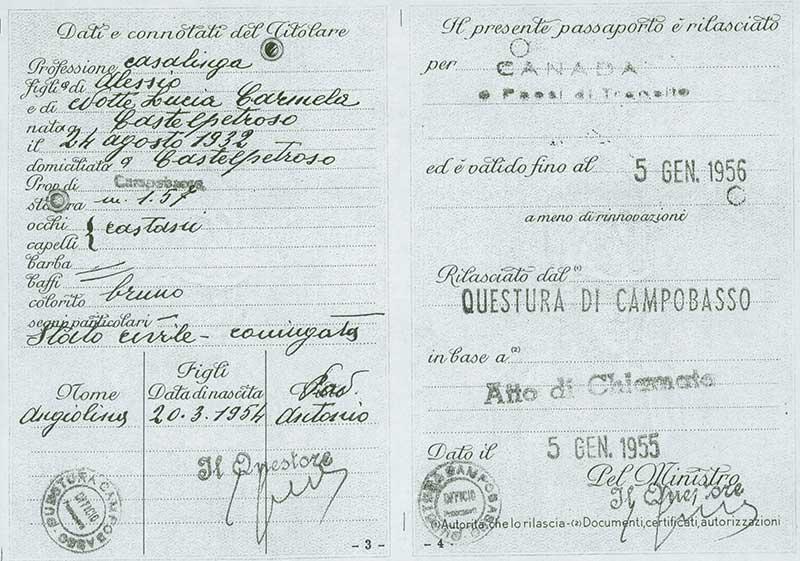 Dati e connotati del Titolare
Professione casalinga
figlia di Alessio
e di Notte Lucia Carmela
nata a Castelpetroso
il 24 agosto 1932
domiciliata a Castelpetroso
Prov. di Campobasso
statura m. 1.57
occhi
capelli } castani
barba
baffi
colorito bruno
segni particolari
Stato civile - coniugata
Figli
Nome Data di nascita Pad.
Angiolina 20.3.1954 Antonio
Il Questore
QUESTURA CAMPOBASSO
UFFICIO
- 3 -
Il presente passaporto è rilasciato
per CANADA
e Paesi di Transito
ed è valido fino al 5 GEN. 1956
a meno di rinnovazioni
Rilasciato dal (1)
QUESTURA DI CAMPOBASSO
in base a (2)
Atto di Chiamata
Dato il 5 GEN. 1955
Pel Ministro
Il Questore
QUESTURA CAMPOBASSO
UFFICIO
(1) Autorità che lo rilascia - (2) Documenti, certificati, autorizzazioni
- 4 -